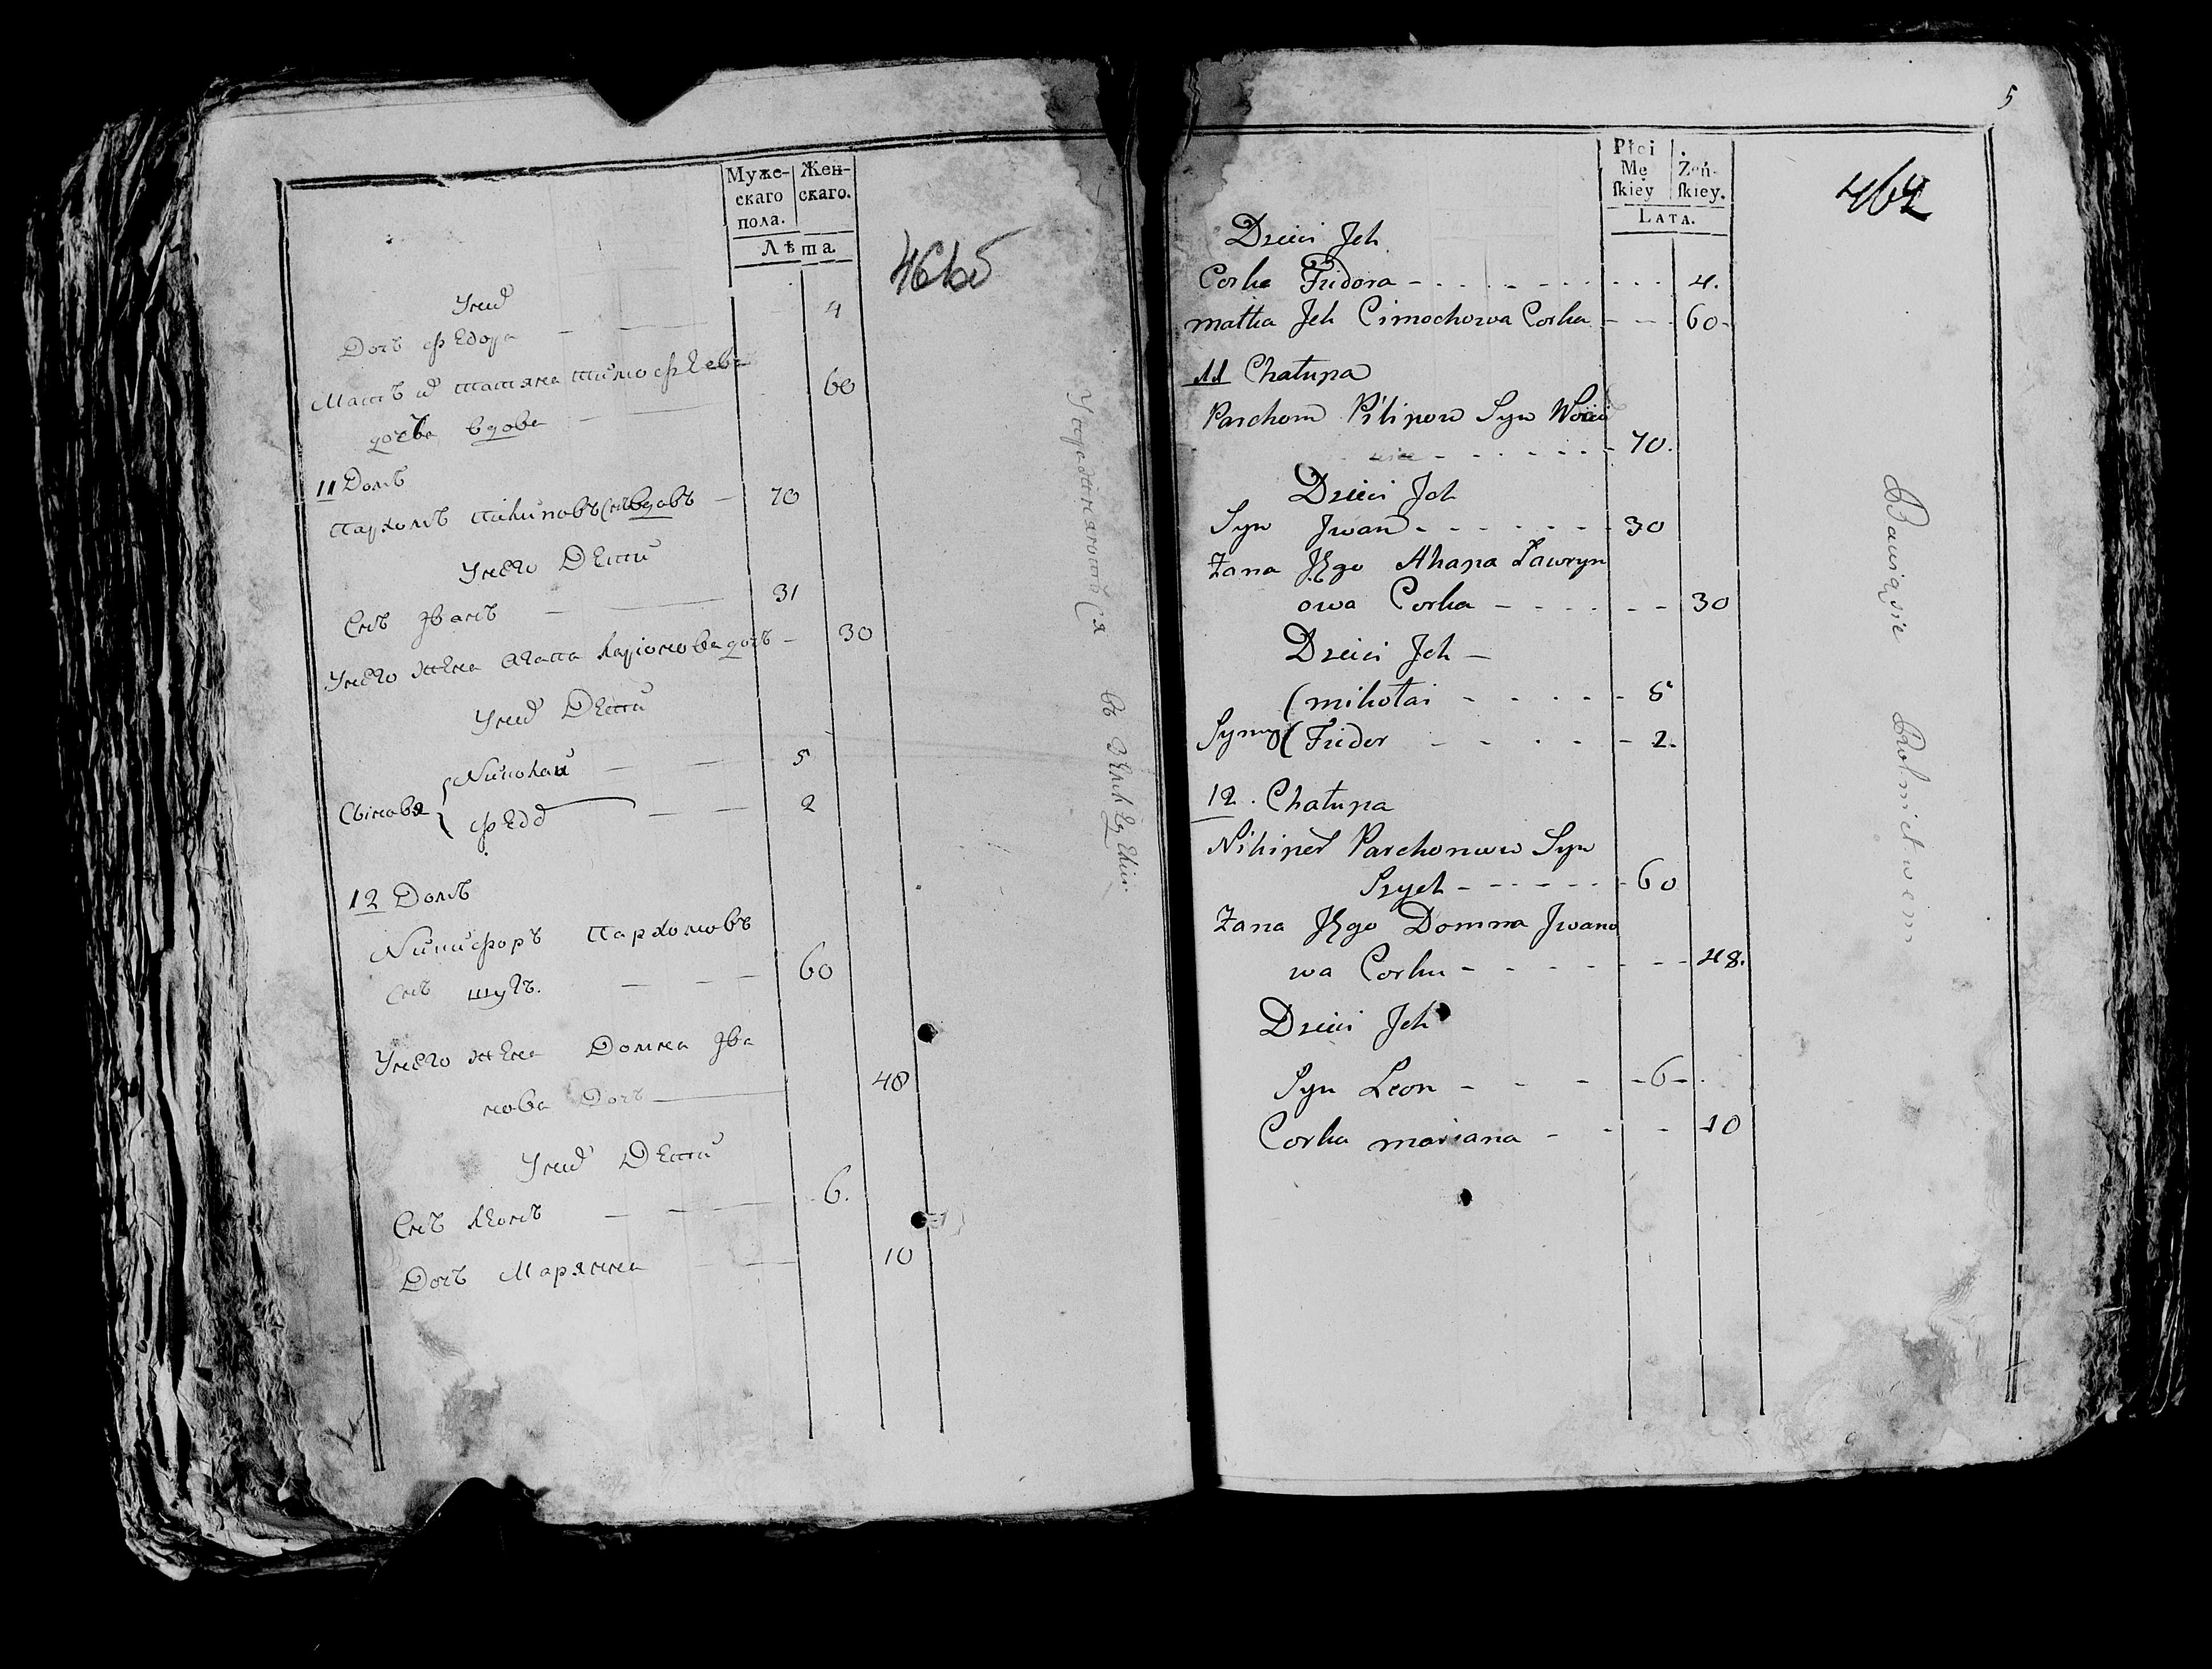 Муже-
скаго
пола.
Жен-
скаго.
Лѣта.
461об
У нихъ
Дочь Федора — — 4
Мать ихъ Татяна Тимофѣева
дочь вдова — 60
11 Домъ
Пархомъ Пилиповъ Снъ вдовъ — 70
У него Дети
Снъ Иванъ — — 31
У него жена Агапа Ларіонова дочь — 30
У нихъ Дети
Николай — — 5
Сынова
Федо — — 2
12 Домъ
Никифоръ Пархомовъ
Снъ — — — 60
У него жена Домна Ива
нова Дочь — 48
У нихъ Дети
Снъ Леонъ — — — 6.
Дочь Марянна — — 10
Упражняются въ
5
Płci
Mę
skiey
Żeń-
skiey.
LATA.
462
Dzieci Jch
Corka Fiedora - - - - 4.
matka Jch Cimochowa Corka - - 60-
11 Chałupa
Parchom Pilipow Syn
- - - - - 70.
Dzieci Jch
Syn Jwan - - - - - 30
Żana Jego Ahapa Ławryn
owa Corka - - - - - - 30
Dzieci Jch —
(mikołai - - - - - 5
Syny (Fiedor - - - - - 2.
12. Chałupa
Nikiper Parchomow Syn
Szych - - - - - - 60
Żana Jego Domna Jwano
wa Corka - - - - - - - 48.
Dzieci Jch
Syn Leon - - - - 6 -
Corka mariana - - - 10
Bawią sie Rolnictwem